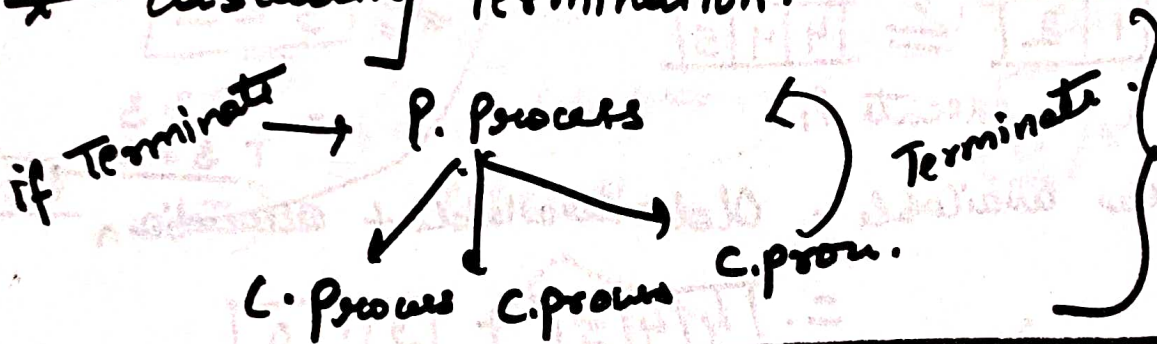 * Cascading Termination.
if Terminate → P. Process Terminate.
C. Process C.process C.proces.